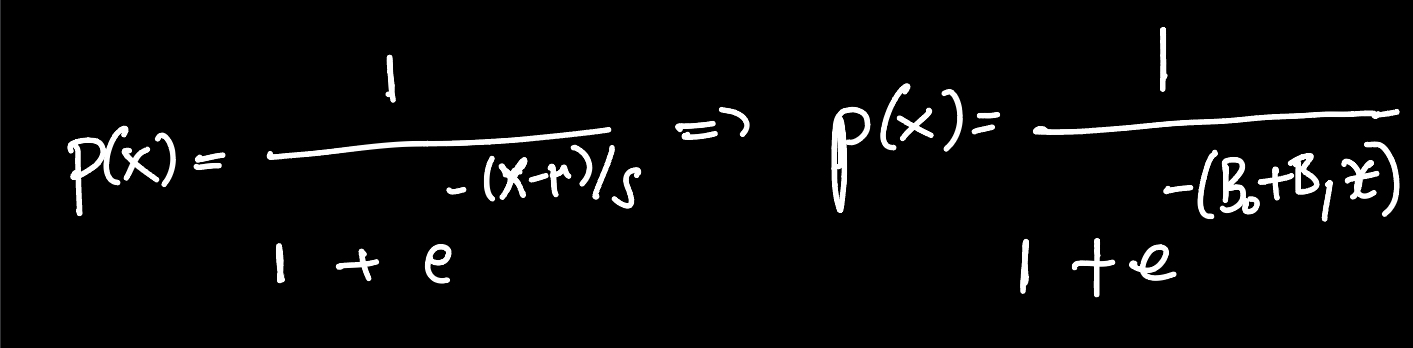 p(x) = 1 / (1 + e^(-(x-μ)/s)) => p(x) = 1 / (1 + e^(-(B₀+B₁x)))